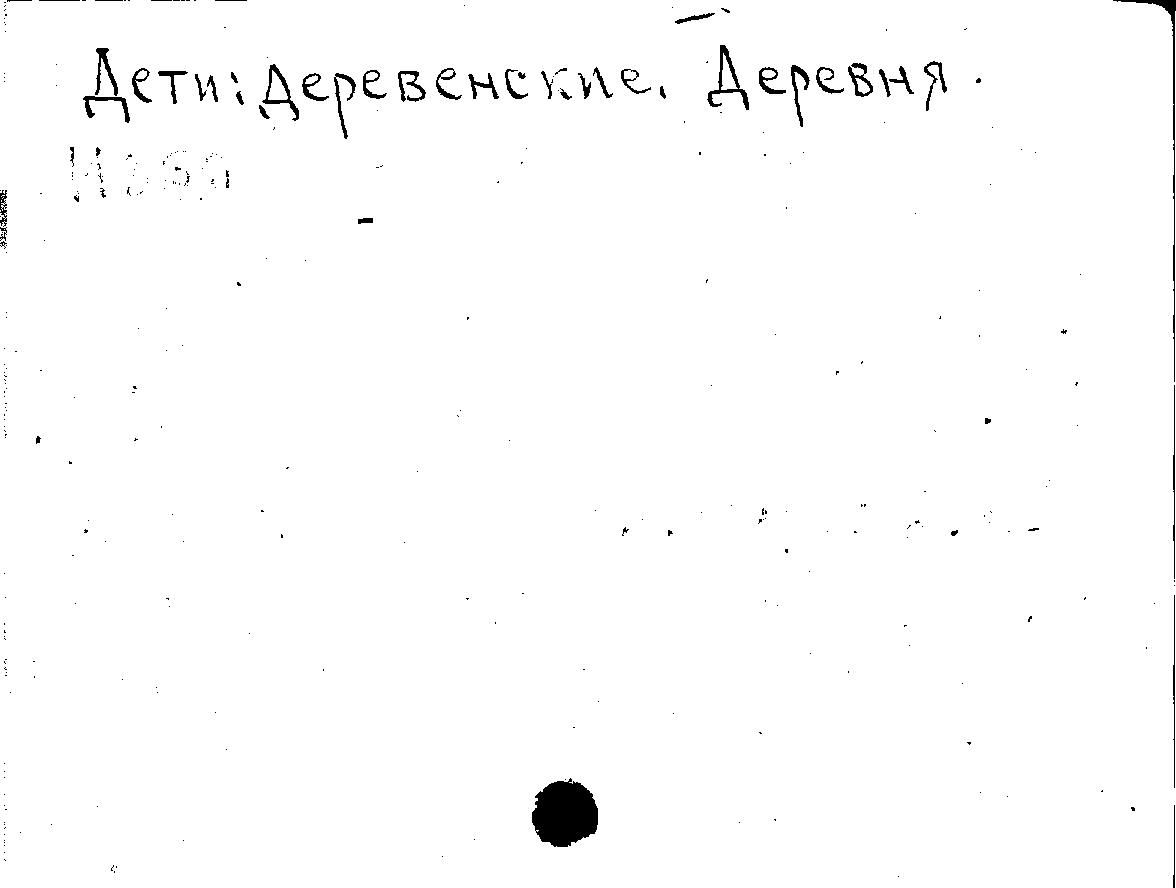 Дети: деревенские. Деревня.